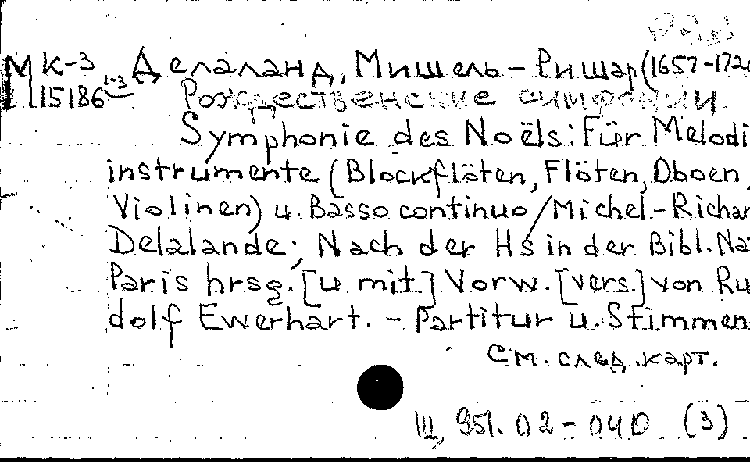 МК-3 Делаланд, Мишель-Ришар (1657-172
15186 1-3 Рождественские симфонии.
Symphonie des Noëls: Für Melodi
instrumente (Blockflöten, Flöten, Oboen,
Violinen) u. Basso continuo / Michel-Richar
Delalande; Nach der Hs in der Bibl. Na
Paris hrsg. [u mit] Vorw. [vers.] von Ru
dolf Ewerhart. - Partitur u. Stimmen
См. след. карт.
Ш, 951. 02-040 (3)